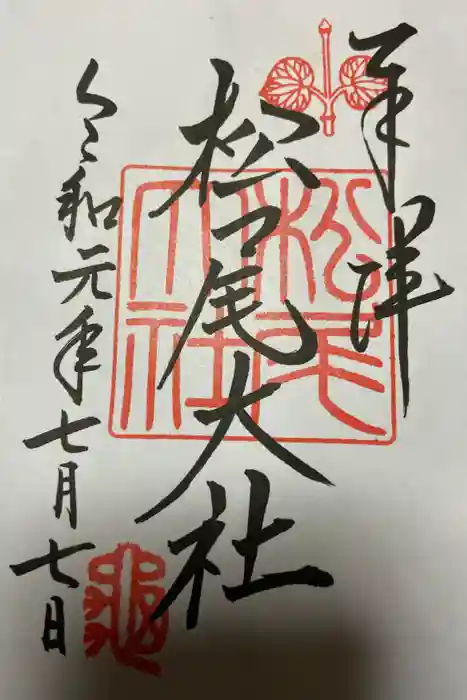 奉拝
松尾大社
令和元年七月七日
松尾大社
亀